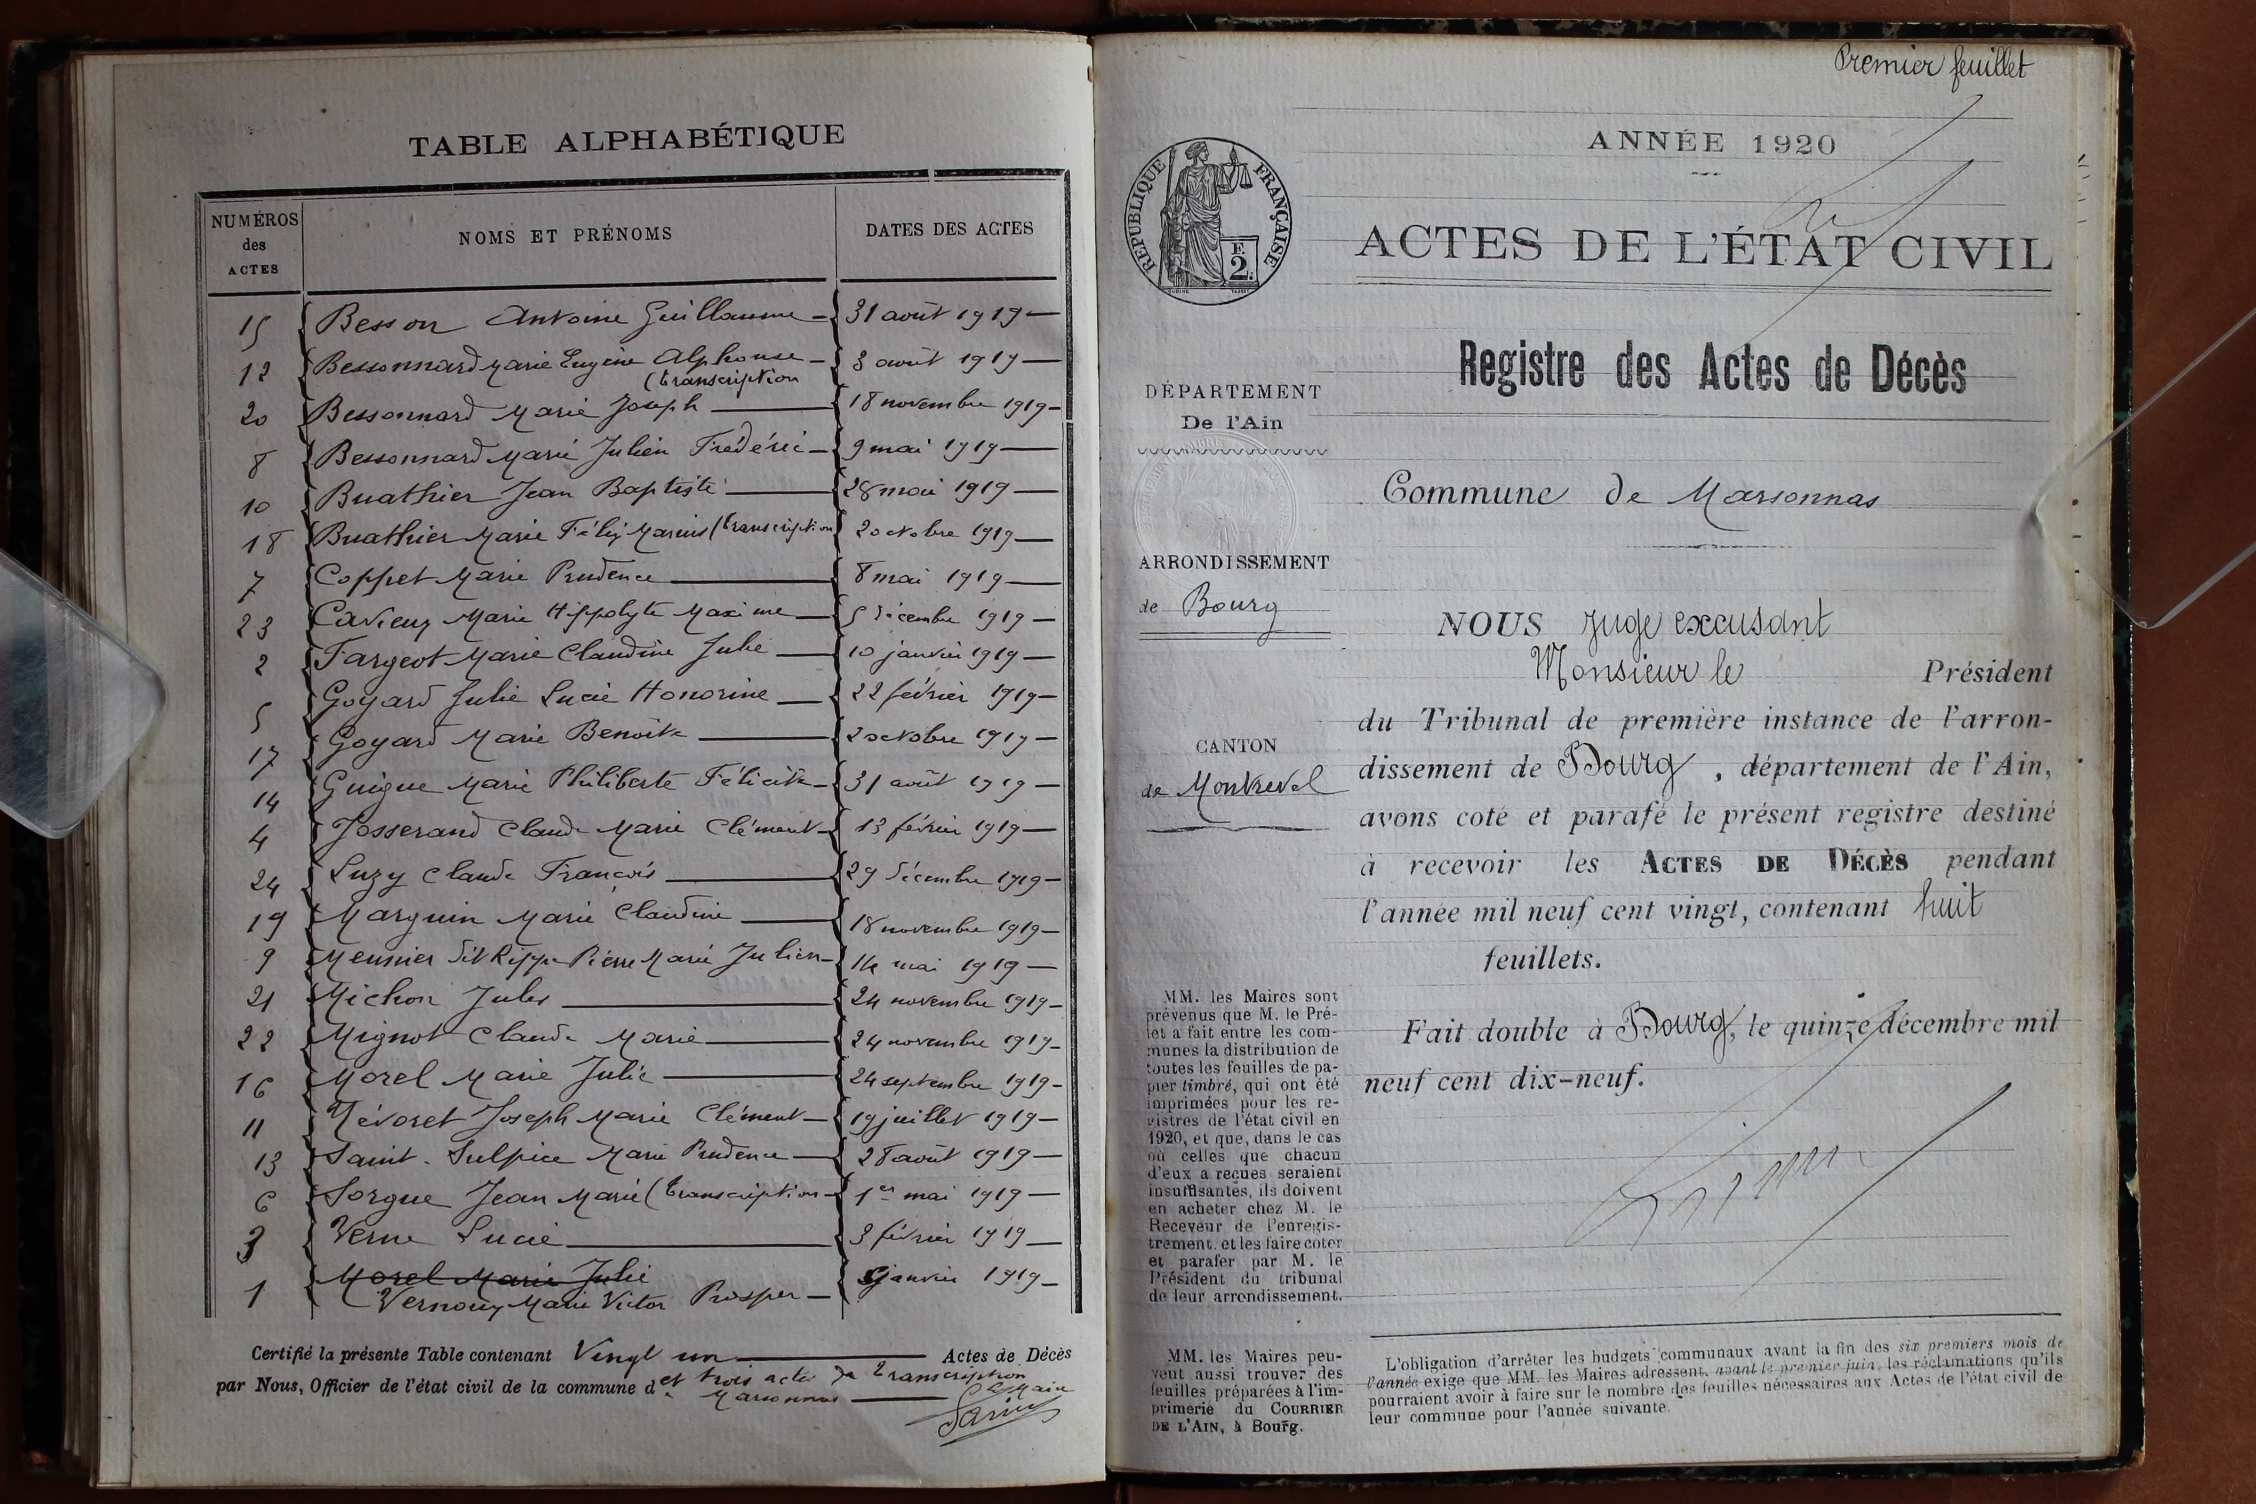 TABLE ALPHABÉTIQUE
NUMÉROS des ACTES NOMS ET PRÉNOMS DATES DES ACTES
15 Besson Antoine Guillaume 31 août 1919
12 Bessonnard Marie Eugène Alphonse 3 août 1919
(transcription
20 Bessonnard Marie Joseph 18 novembre 1919
8 Bessonnard Marie Julien Frédéric 9 mai 1919
10 Buathier Jean Baptiste 28 mai 1919
18 Buathier Marie Félix Marius (transcription 2 octobre 1919
7 Coppet Marie Prudence 8 mai 1919
23 Cavieux Marie Hippolyte Maxime 5 décembre 1919
2 Fargeot Marie Claudine Julie 10 janvier 1919
5 Goyard Julie Lucie Honorine 22 février 1919
17 Goyard Marie Benoite 2 octobre 1919
14 Guigue Marie Philiberte Félicité 31 août 1919
4 Josserand Claude Marie Clément 13 février 1919
24 Luzy Claude François 29 décembre 1919
19 Marguin Marie Claudine 18 novembre 1919
9 Meunier dit Rippe Pierre Marie Julien 14 mai 1919
21 Michon Jules 24 novembre 1919
22 Mignot Claude Marie 24 novembre 1919
16 Morel Marie Julie 24 septembre 1919
11 Névoret Joseph Marie Clément 19 juillet 1919
13 Saint-Sulpice Marie Prudence 28 août 1919
6 Sorgue Jean Marie (transcription 1er mai 1919
3 Verne Lucie 3 février 1919
Morel Marie Julie
1 Vernoux Marie Victor Prosper janvier 1919
Certifié la présente Table contenant Vingt un Actes de Décès
et trois actes de transcription
par Nous, Officier de l'état civil de la commune d e Marsonnas
Le Maire
Premier feuillet
ANNÉE 1920
RÉPUBLIQUE FRANÇAISE
E.
2.
ACTES DE L'ÉTAT CIVIL
Registre des Actes de Décès
DÉPARTEMENT
De l'Ain
Commune de Marsonnas
ARRONDISSEMENT
de Bourg
CANTON
de Montrevel
NOUS Juge excusant
Monsieur le Président
du Tribunal de première instance de l'arron-
dissement de Bourg, département de l'Ain,
avons coté et parafé le présent registre destiné
à recevoir les ACTES DE DÉCÈS pendant
l'année mil neuf cent vingt, contenant huit
feuillets.
Fait double à Bourg, le quinze décembre mil
neuf cent dix-neuf.
MM. les Maires sont
prévenus que M. le Pré-
fet a fait entre les com-
munes la distribution de
toutes les feuilles de pa-
pier timbré, qui ont été
imprimées pour les re-
gistres de l'état civil en
1920, et que, dans le cas
où celles que chacun
d'eux a reçues seraient
insuffisantes, ils doivent
en acheter chez M. le
Receveur de l'enregis-
trement. et les faire coter
et parafer par M. le
Président du tribunal
de leur arrondissement.
MM. les Maires peu-
vent aussi trouver des
feuilles préparées à l'im-
primerie du COURRIER
DE L'AIN, à Bourg.
L'obligation d'arrêter les budgets communaux avant la fin des six premiers mois de
l'année exige que MM. les Maires adressent, avant le premier juin, les réclamations qu'ils
pourraient avoir à faire sur le nombre des feuilles nécessaires aux Actes de l'état civil de
leur commune pour l'année suivante.